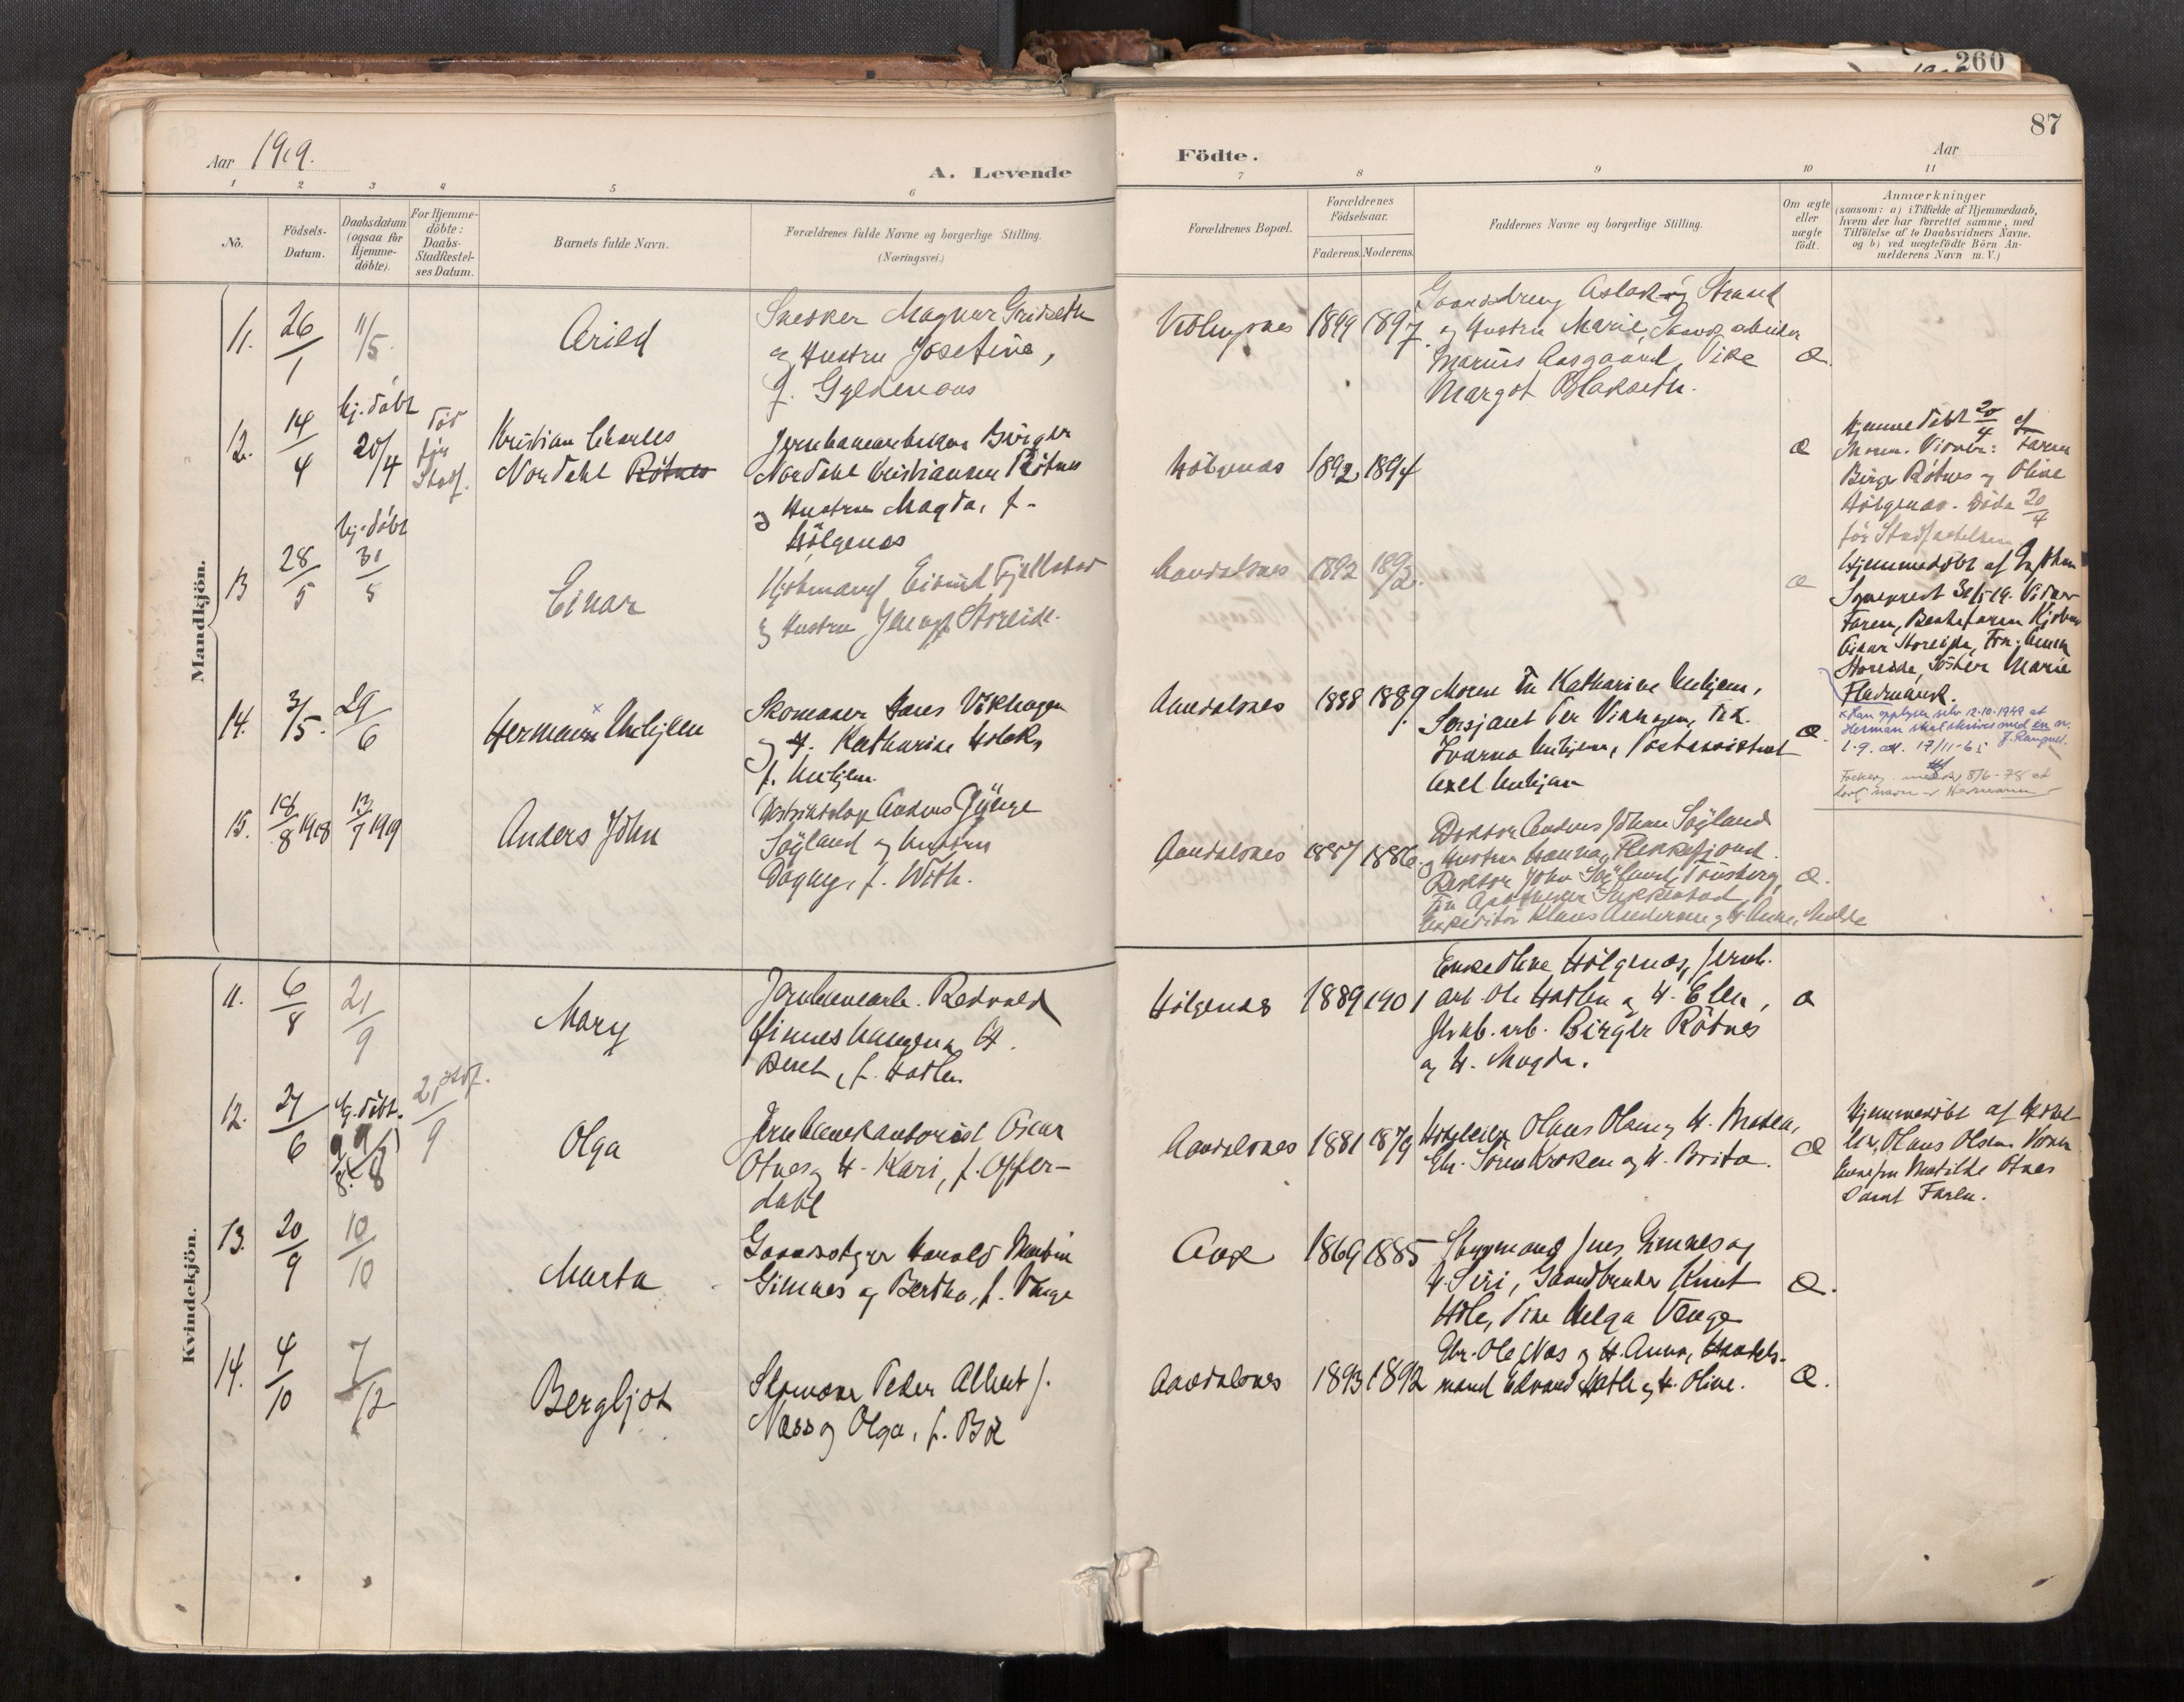 260
87
Aar 1919.
A. Levende
Födte.
Aar
1 2 3 4 5 6 7 8 9 10 11
No.
Födsels-
Datum.
Daabsdatum
(ogsaa for
Hjemme-
döbte).
For Hjemme-
döbte:
Daabs-
Stadfæstel-
ses Datum.
Barnets fulde Navn.
Forældrenes fulde Navne og borgerlige Stilling.
(Næringsvei.)
Forældrenes Bopæl.
Forældrenes
Födselsaar.
Faderens. Moderens.
Faddernes Navne og borgerlige Stilling.
Om ægte
eller
uægte
födt.
Anmærkninger
(saasom: a) i Tilfælde af Hjemmedaab,
hvem der har forrettet samme, med
Tilföielse af to Daabsvidners Navne.
og b) ved uægtefödte Börn An-
melderens Navn m. V.)
Mandkjön.
11. 26/1 11/5.
Arild
Snedker Magnar Griseth
og Hustru Josefine,
f. Gyldenaas
1899 1897
Gaardsdreng Aslak Strand
og Hustru Marie,
Marius Aasgaard, Pike
Margot Blakseth.
Æ.
12. 14/4
hj. döbt
20/4
död
för
Stadf.
Kristian Charles
Nordahl Rötnes
Jernbanearbeider Birger
Nordahl Kristiansen Rötnes
og Hustru Magda, f.
Hölgenes
Hölgenes 1892 1894
Æ
Hjemmedöbt 20/4 af
Moren. Vidner: Faren
Birger Rötnes og Oline
Hölgenes. Döde 20/4
för Stadfæstelsen
13 28/5
hj. döbt
31/5
Einar
Eivind Fjellstad
og Hustru Storeide.
Aandalsnes 1892 1892.
Æ
Hjemmedöbt af
Sogneprest 31/5 19. Vidner
Faren, Bestefaren
Einar Storeide, Fru
Storeide, Söster Marie
Fladmark.
14. 3/5. 29/6
Hermann Unhjem
x
Skomaker Vikhagen
og H. Katharine
f. Unhjem.
Aandalsnes 1888 1889.
Moren Fru Katharine Unhjem,
Sersjant Per Vikhagen, Frk.
Ivarna Unhjem, Postassistent
Axel Unhjem
Æ.
x Han opplyser selv 12.10.1949 at
Herman skal skrives med en n.
17/11-65
8/6-78 at
navn er Hermann
15. 18/8 1918 13/7 1919
Anders John
Distriktslæge Anders
Söyland og Hustru
Dagny, f. With.
Aandalsnes 1887 1886.
Doktor Anders Johan Söyland
og Hustru Hanna, Flekkefjord.
Rektor John Söyland, Tönsberg,
Fru Apotheker
Expeditör Klaus Andersen og H. Molde
Æ.
Kvindekjön.
11. 6/8 21/9
Mary
Jernbanearb. Redvald
Finneshaugen og H.
Beret, f. Hatlen
Hölgenes 1889 1901
Enke Oline Hölgenes, Jernb.
arb. Ole Hatlen og H. Elen,
Jernb. arb. Birger Rötnes
og H. Magda.
Æ
12. 27/6
hj. döbt.
8
Stdf.
21/9
Olga
Oscar
Otnes og H. Kari, f. Offer-
dahl
Aandalsnes 1881 1879
Olaus Olsen og H. Madea,
Gbr. Sören Kroken og H. Brita.
Æ
Hjemmedöbt af
Olaus Olsen.
Matilde Otnes
samt Faren.
13. 20/9 10/10
Marta
Gaardseier Harald Martin
Gimnes og Bertha, f. Venge
Aak 1869 1885
Styrmand Jens Gimnes og
H. Siri, Gaardbruker Knut
Hole, Pike Helga Venge
Æ.
14. 4/10 7/12
Bergljot
Skomaker Peder Albert J.
Næss og Olga, f. Bö
Aandalsnes 1893 1892
Gbr. Ole Næs og H. Anna, Handels-
mand Edvard Hatle og H. Oline.
Æ.